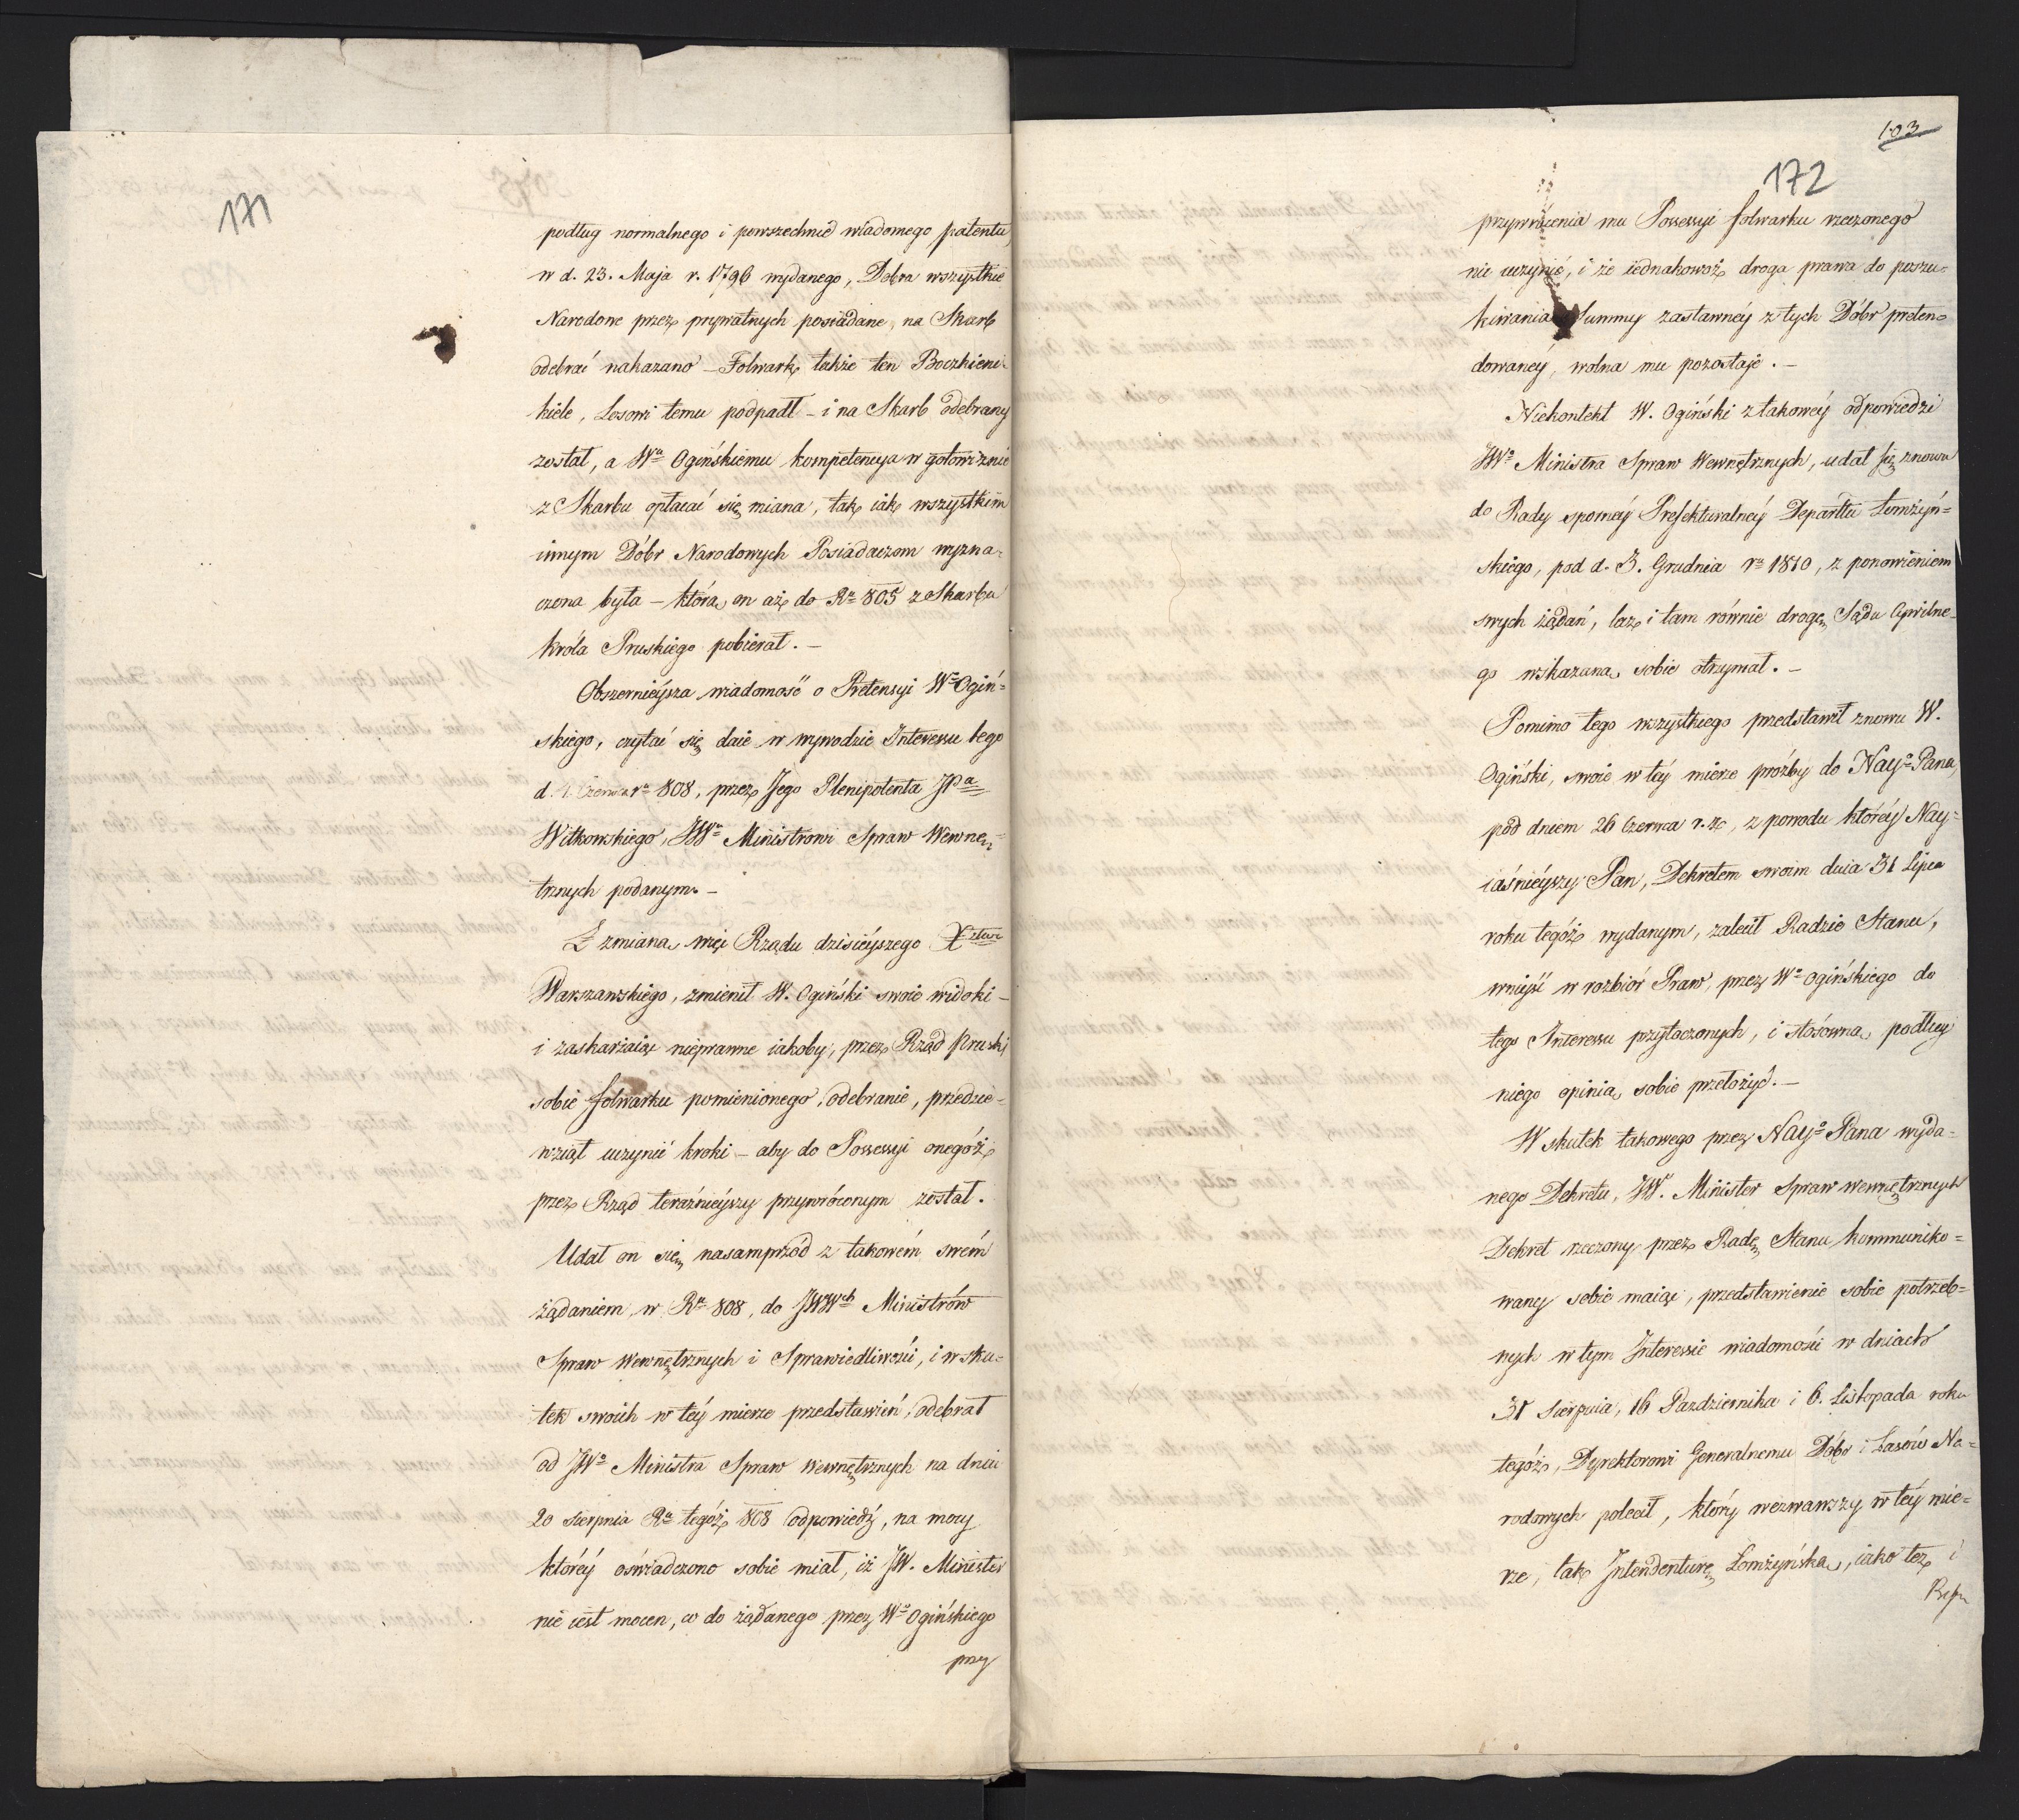 171
podług normalnego i powszechnie wiadomego patentu
w d. 23. Maja r. 1796 wydanego, Dobra wszystkie
Narodowe przez prywatnych posiadane, na Skarb
odebrać nakazano – Folwark także ten Boczkieni-
kiele, Losowi temu podpadł – i na Skarb odebrany
został, a Wu Ogińskiemu kompetencya w gotowiznie
z Skarbu opłacać się miana, tak iak wszystkim
innym Dóbr Narodowych Posiadaczom wyzna-
czona była – którą on aż do Ru 805 z Skarbu
króla Pruskiego pobierał. –
Obszernieysza wiadomość o Pretensyi Wo Ogiń-
skiego, czytać się daie w wywodzie Interessu tego
d. 1. Czerwca ro 808, przez Jego Plenipotenta JPa
Witkowskiego, JWu Ministrowi Spraw Wewnę-
trznych podanym. –
Z zmianą więc Rządu dzisieyszego Xstwa
Warszawskiego, zmienił W. Ogiński swoie widoki –
i zaskarżaiąc nieprawne iakoby, przez Rząd Pruski
sobie folwarku pomienionego, odebranie, przedsie-
wziął uczynić kroki – aby do Possessyi onegóż
przez Rząd teraźnieyszy przywróconym został.
Udał on się nasamprzód z takowém swém
żądaniem, w Ru 808, do JWWch Ministrów
Spraw Wewnętrznych i Sprawiedliwości, i w sku-
tek swoich w téy mierze przedstawień, odebrał
od JWo Ministra Spraw Wewnętrznych na dniu
20 Sierpnia Ru tegóż 808 odpowiedź, na mocy
któréy oświadczono sobie miał, iż JW. Minister
nie iest mocen, co do żądanego przez Wo Ogińskiego
przy
103
172
przywrócenia mu Possessyi folwarku rzeczonego
nic uczynić, i że iednakowoż droga prawa do poszu-
kiwania Summy zastawnéy z tych Dóbr preten-
dowanéy, wolna mu pozostaje. –
Niekontent W. Ogiński z takowéy odpowiedzi
JWo Ministra Spraw Wewnętrznych, udał się znowu
do Rady sporney Prefekturalnéy Departtu Łomżyń-
skiego, pod d. 3. Grudnia ro 1810, z ponowieniem
swych żądań, lecz i tam równie drogę Sądu Cywilne-
go wskazaną sobie otrzymał. –
Pomimo tego wszystkiego przedstawił znowu W.
Ogiński, swoie w téy mierze prośby do Nayo Pana,
pod dniem 26 Czerwca r. z., z powodu któréy Nay-
iaśnieyszy Pan, Dekretem swoim dnia 31 Lipca
roku tegóż wydanym, zalecił Radzie Stanu,
wniyść w rozbiór Praw, przez Wo Ogińskiego do
tego Interessu przytoczonych, i stosowną podług
niego opinią sobie przełożyć. –
W skutek takowego przez Nayo Pana wyda-
nego Dekretu, JW. Minister Spraw Wewnętrznych
Dekret rzeczony przez Radę Stanu kommuniko-
wany sobie maiąc, przedstawienie sobie potrzeb-
nych w tym Interessie wiadomości w dniach
31 Sierpnia, 16 Pazdziernika i 6. Listopada roku
tegóż, Dyrektorowi Generalnemu Dóbr i Lasów Na-
rodowych polecił, który wezwawszy w téy mie-
rze, tak Intendenturę Łomżyńską, iako też i